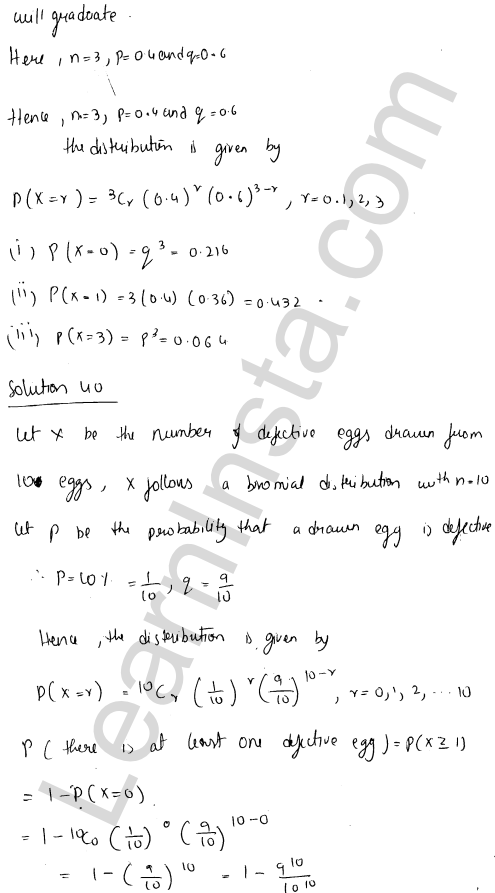 will graduate.
Here, n=3, p=0.4 and q=0.6
Hence, n=3, p=0.4 and q=0.6
the distribution is given by
P(X=r) = ³Cᵣ (0.4)^r (0.6)^{3-r}, r=0.1,2,3
(i) P(X=0) = q³ = 0.216
(ii) P(X=1) = 3(0.4) (0.36) = 0.432.
(iii) P(X=3) = P³ = 0.064
Solution 40
Let X be the number of defective eggs drawn from
10 eggs, X follows a binomial distribution with n=10
Let p be the probability that a drawn egg is defective
∴ P=10% = 1/10, q = 9/10
Hence, the distribution is given by
P(X=r) = ¹⁰Cᵣ (1/10)^r (9/10)^{10-r}, r=0,1,2,...10
P(there is at least one defective egg) = P(X≥1)
= 1-P(X=0)
= 1-10C₀ (1/10)^0 (9/10)^{10-0}
= 1-(9/10)^{10} = 1-9^{10}/10^{10}
LearnInsta.com